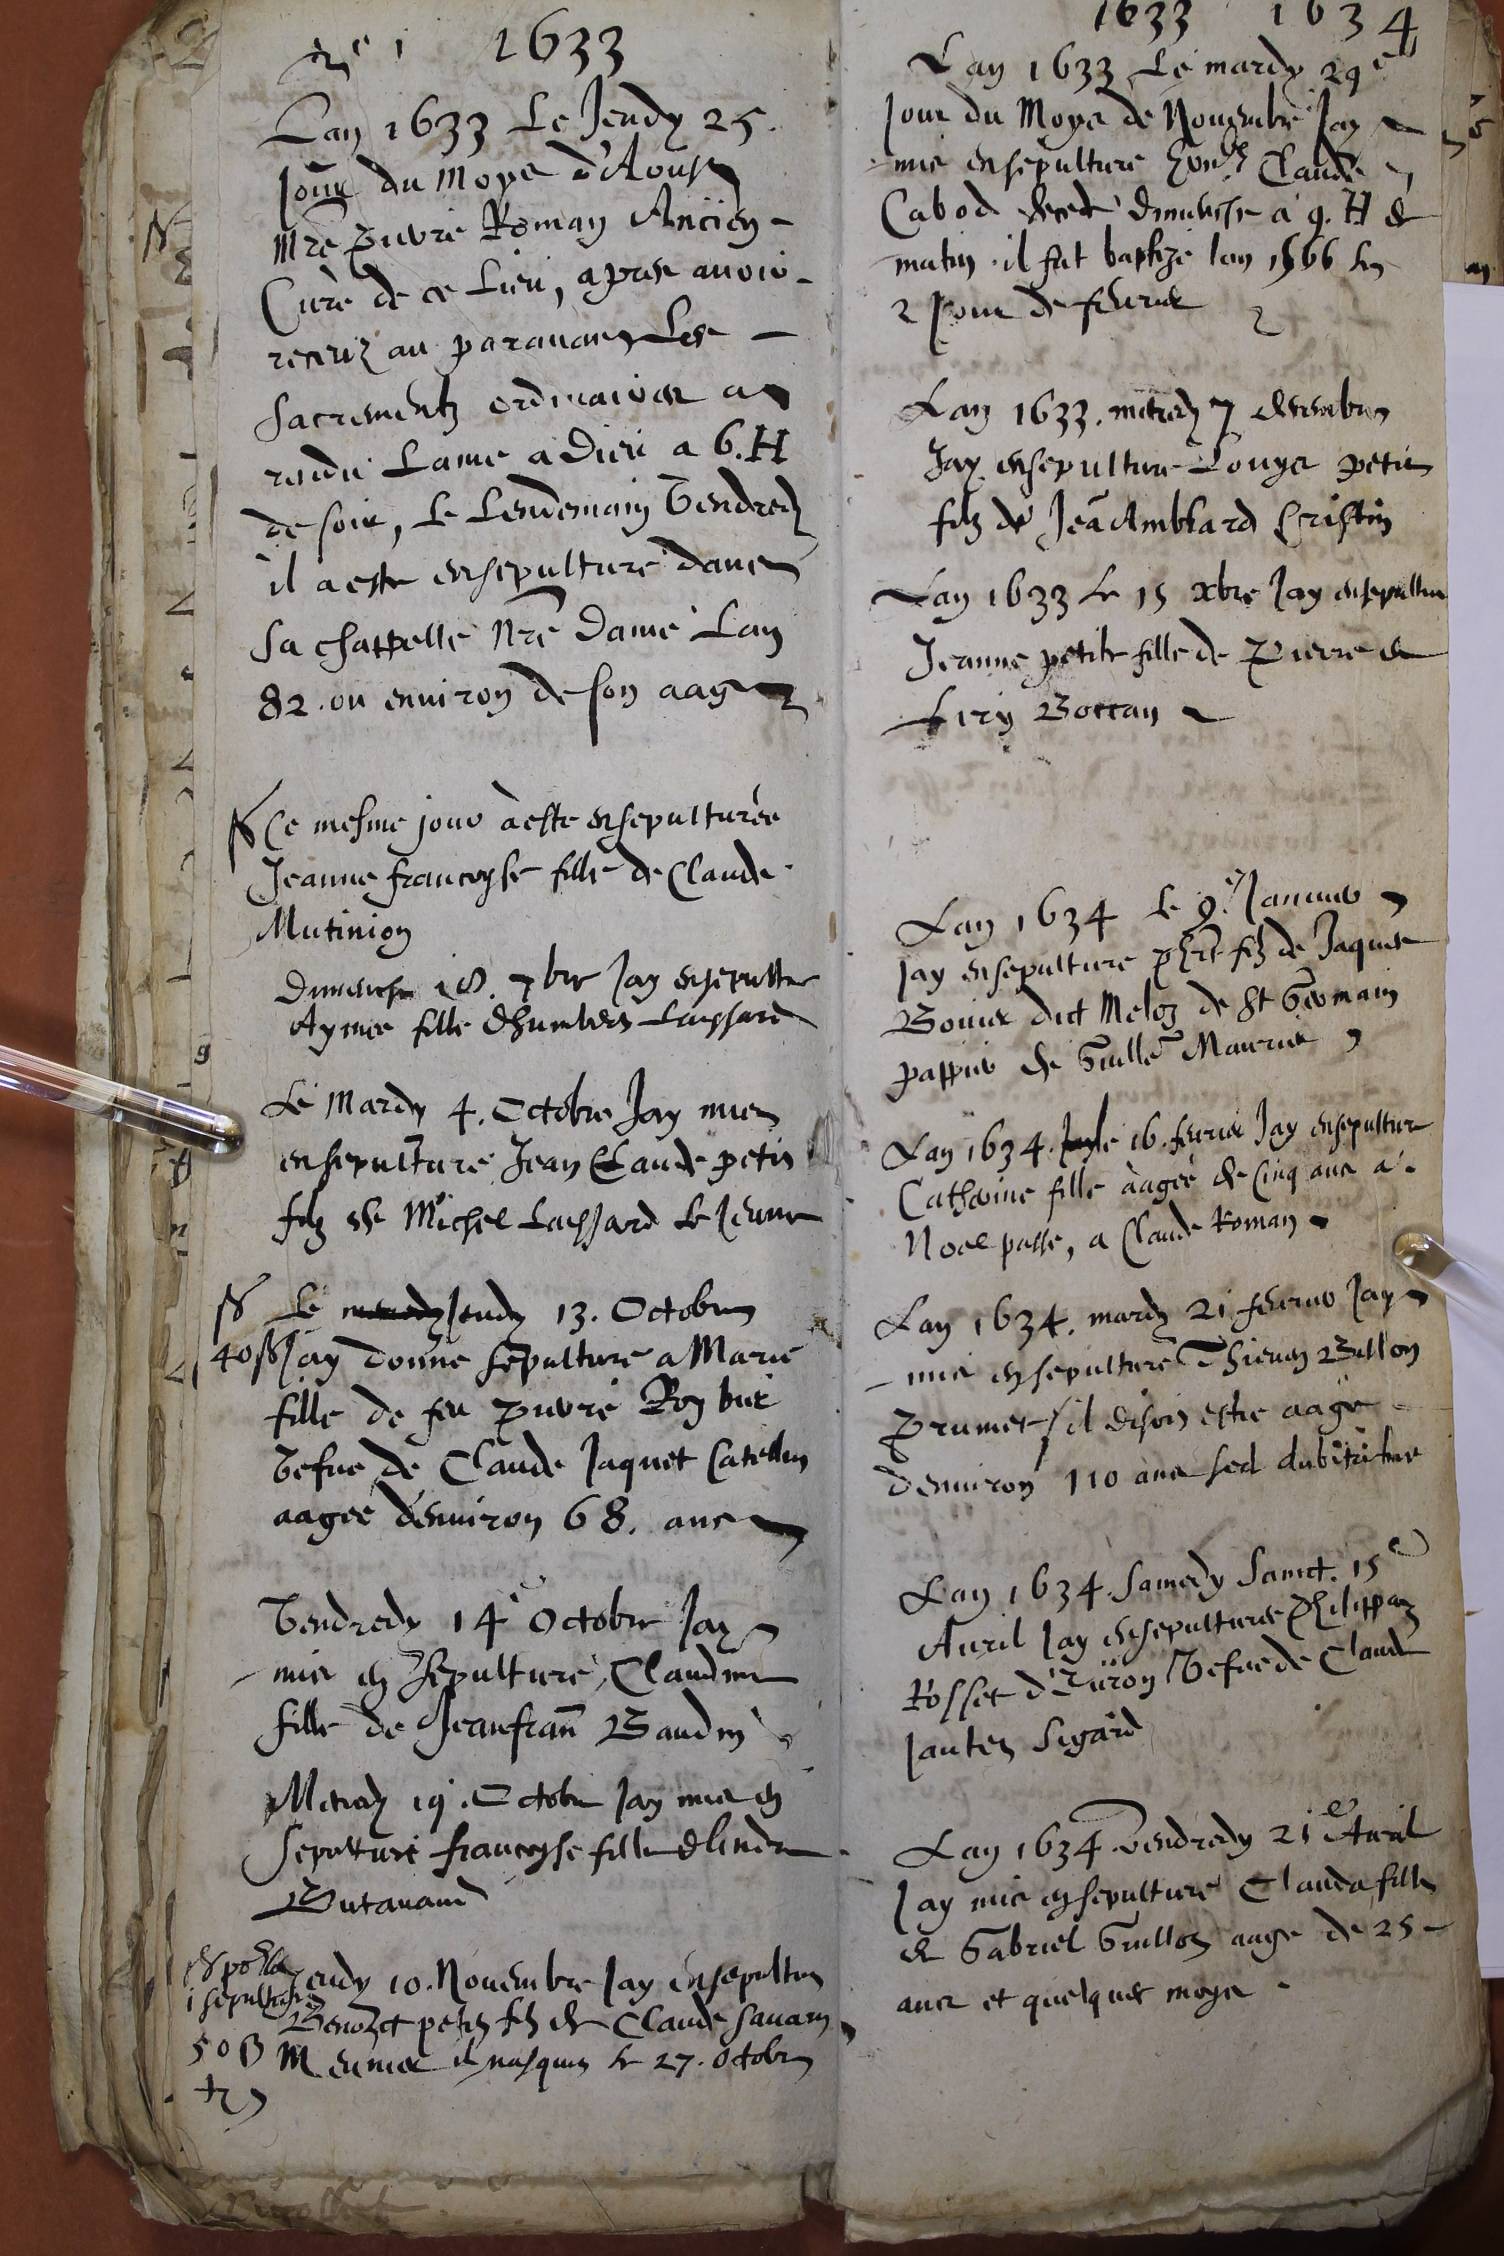 1633
Lan 1633 Le Jeudy 25
Jour du Moys d'Aoust
Mre Pierre Roman Ancien
Curè de ce Lieu, apres avoir
receuz au paravant Les
sacrements ordinaires a
rendu Lame a Dieu a 6. H
de soir, Le Lendemain Vendredy
il a este ensepulturé dans
sa chappelle Nre Dame Lan
82. ou environ de son aage
Ce mesme jour à este ensepulturée
Jeanne francoyse fille de Claude
Mutinion
Dimenche 18. 7bre Jay ensepulture
Aymee fille d'humbert Layssard
Le Mardy 4. Octobre Jay mis
ensepulture Jean Claude petit
filz de Michel Layssard Le Jeune
Le mercredy Jeudy 13. Octobre
40 ß Jay donné sepulture a Marie
fille de feu Pierre Roybué
Vefve de Claude Jaquet Catellin
aagee d'environ 68. ans
Vendredy 14e Octobre Jay
mis en sepulture, Claudine
fille de Jeanfran Baudin
Mecredy 19. Octobre Jay mis en
sepulture francoyse fille
Butavand
1 sepulture
Jeudy 10. Novembre Jay ensepulture
50 ß
Benoict petit filz de Claude Savarin
Meunier il nasquit le 27. Octobre
1633 1634
Lan 1633 Le mardy 29e
Jour du Moys de Novembre Jay
mis ensepulture Claude
Cabod decedé Dimenche a 9. H de
matin. il fut baptizé lan 1566 le
2 Jour de fevrier
Lan 1633. mecredy 7 decembre
Jay ensepulture Louys petit
filz de Jean Amblard Cristin
Lan 1633 le 15 xbre Jay ensepulture
Jeanne petite fille de Pierre de
Boccan
Lan 1634 le 9e Janvier
Jay ensepulture filz de Jaques
Bovier dict Meloz de St Germain
de Guille Maurier
Lan 1634. le 16. fevrier Jay ensepulture
Catherine fille àagée de cinq ans a
Noel passe, a Claude Roman
Lan 1634. mardy 21 fevrier Jay
mis ensepulture Thieven Bullon
Prumet / il disoit estre aagé
denviron 110 ans sed
Lan 1634. Samedy Sainct. 15e
Avril Jay ensepulture Philippaz
Rosset Vefve de Claude
Sigard
Lan 1634. Vendredy 21e Avril
Jay mis ensepulture Clauda fille
de Gabriel Guilloz aage de 25
ans et quelques moys